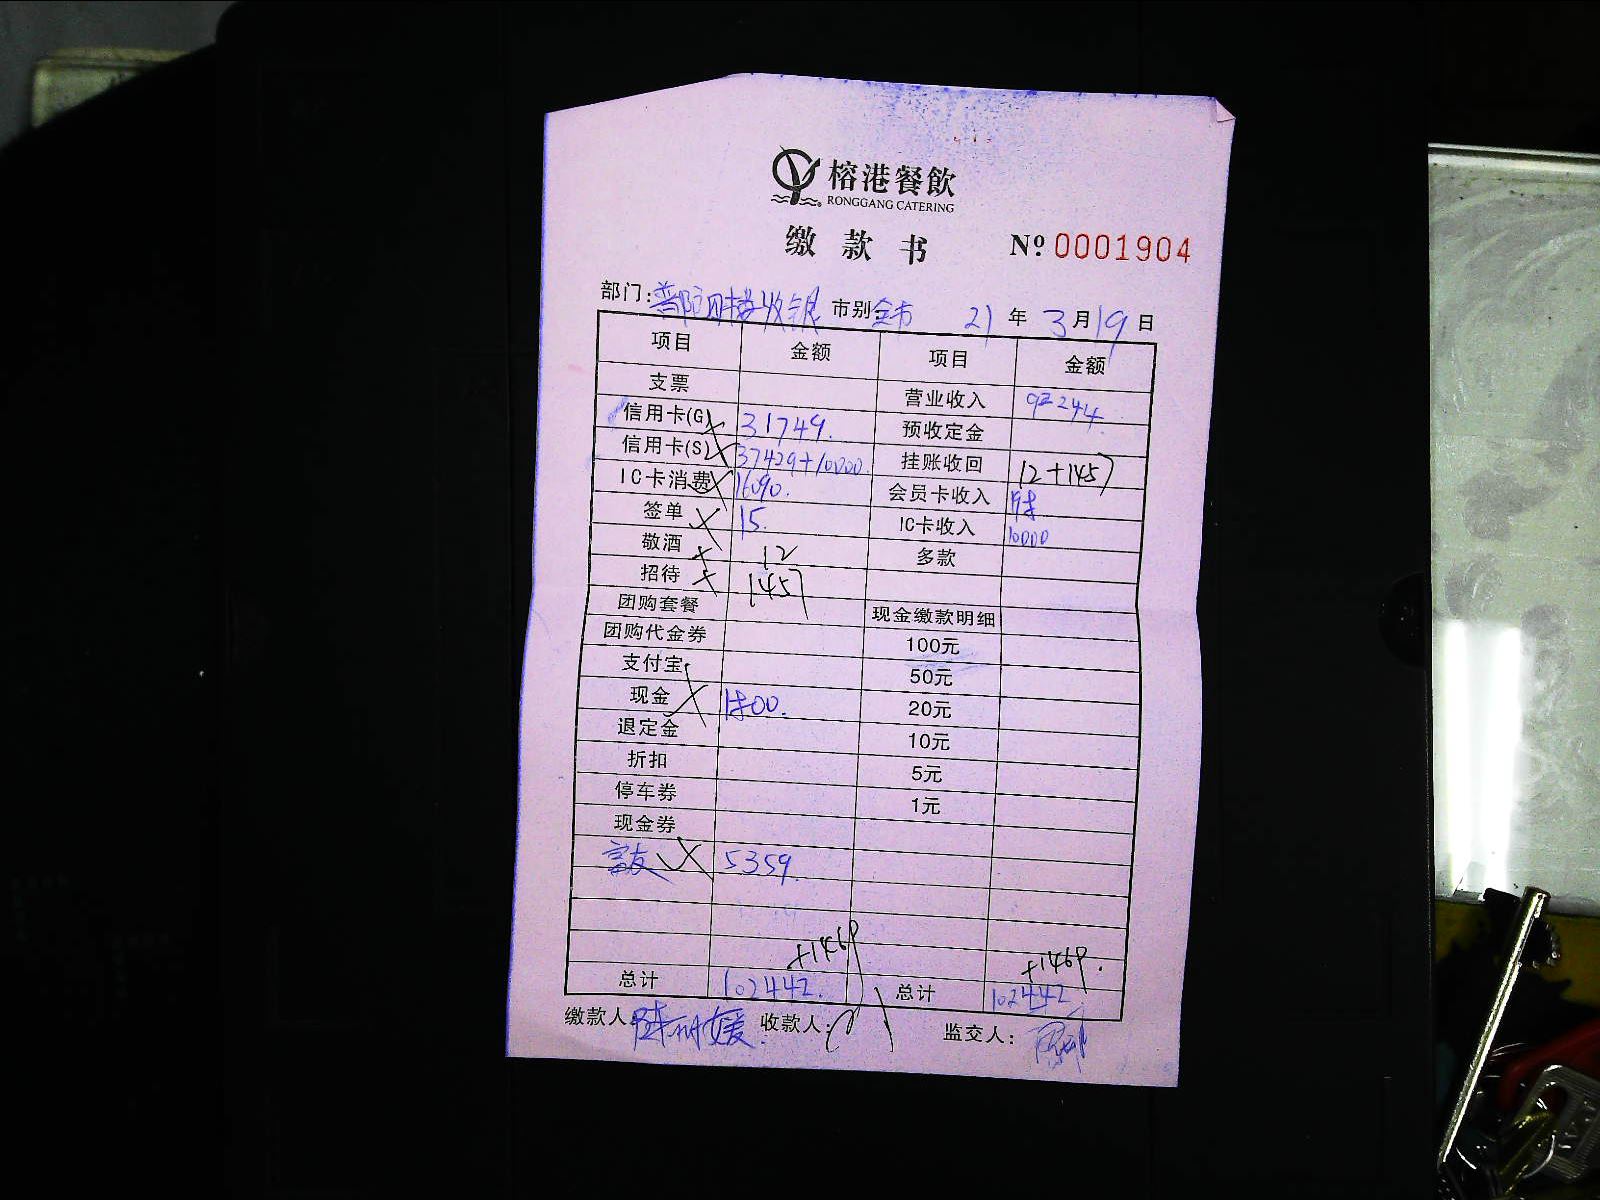 榕港餐飲
RONGGANG CATERING
缴款书 Nº 0001904
部门:普陀四楼收银 市别:全市 21年3月19日
项目 金额 项目 金额
支票 营业收入 92244
信用卡(G) 31749. 预收定金
信用卡(S) 37429+10000. 挂账收回 12+1457
IC卡消费 16090. 会员卡收入 198
签单 15. IC卡收入 10000
敬酒 12 多款
招待 1457
团购套餐 现金缴款明细
团购代金券 100元
支付宝 50元
现金 1800. 20元
退定金 10元
折扣 5元
停车券 1元
现金券
富友 5359.
+1469 +1469.
总计 102442. 总计 102442
缴款人: 收款人: 监交人: